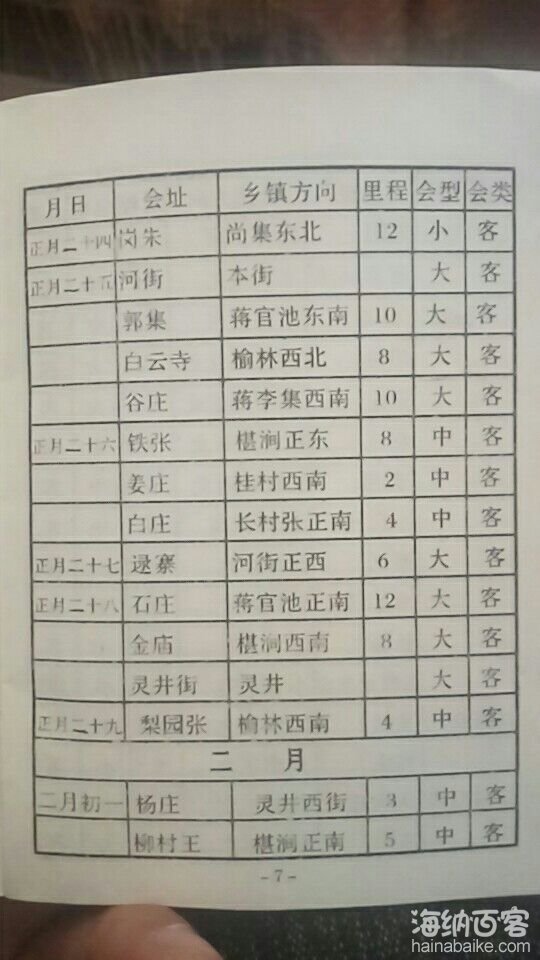 月日 会址 乡镇方向 里程 会型 会类
正月二十四 岗朱 尚集东北 12 小 客
正月二十五 河街 本街 大 客
郭集 蒋官池东南 10 大 客
白云寺 榆林西北 8 大 客
谷庄 蒋李集西南 10 大 客
正月二十六 铁张 椹涧正东 8 中 客
姜庄 桂村西南 2 中 客
白庄 长村张正南 4 中 客
正月二十七 逯寨 河街正西 6 大 客
正月二十八 石庄 蒋官池正南 12 大 客
金庙 椹涧西南 8 大 客
灵井街 灵井 大 客
正月二十九 梨园张 榆林西南 4 中 客
二 月
二月初一 杨庄 灵井西街 3 中 客
柳村王 椹涧正南 5 中 客
-7-
海纳百客
hainabaike.com